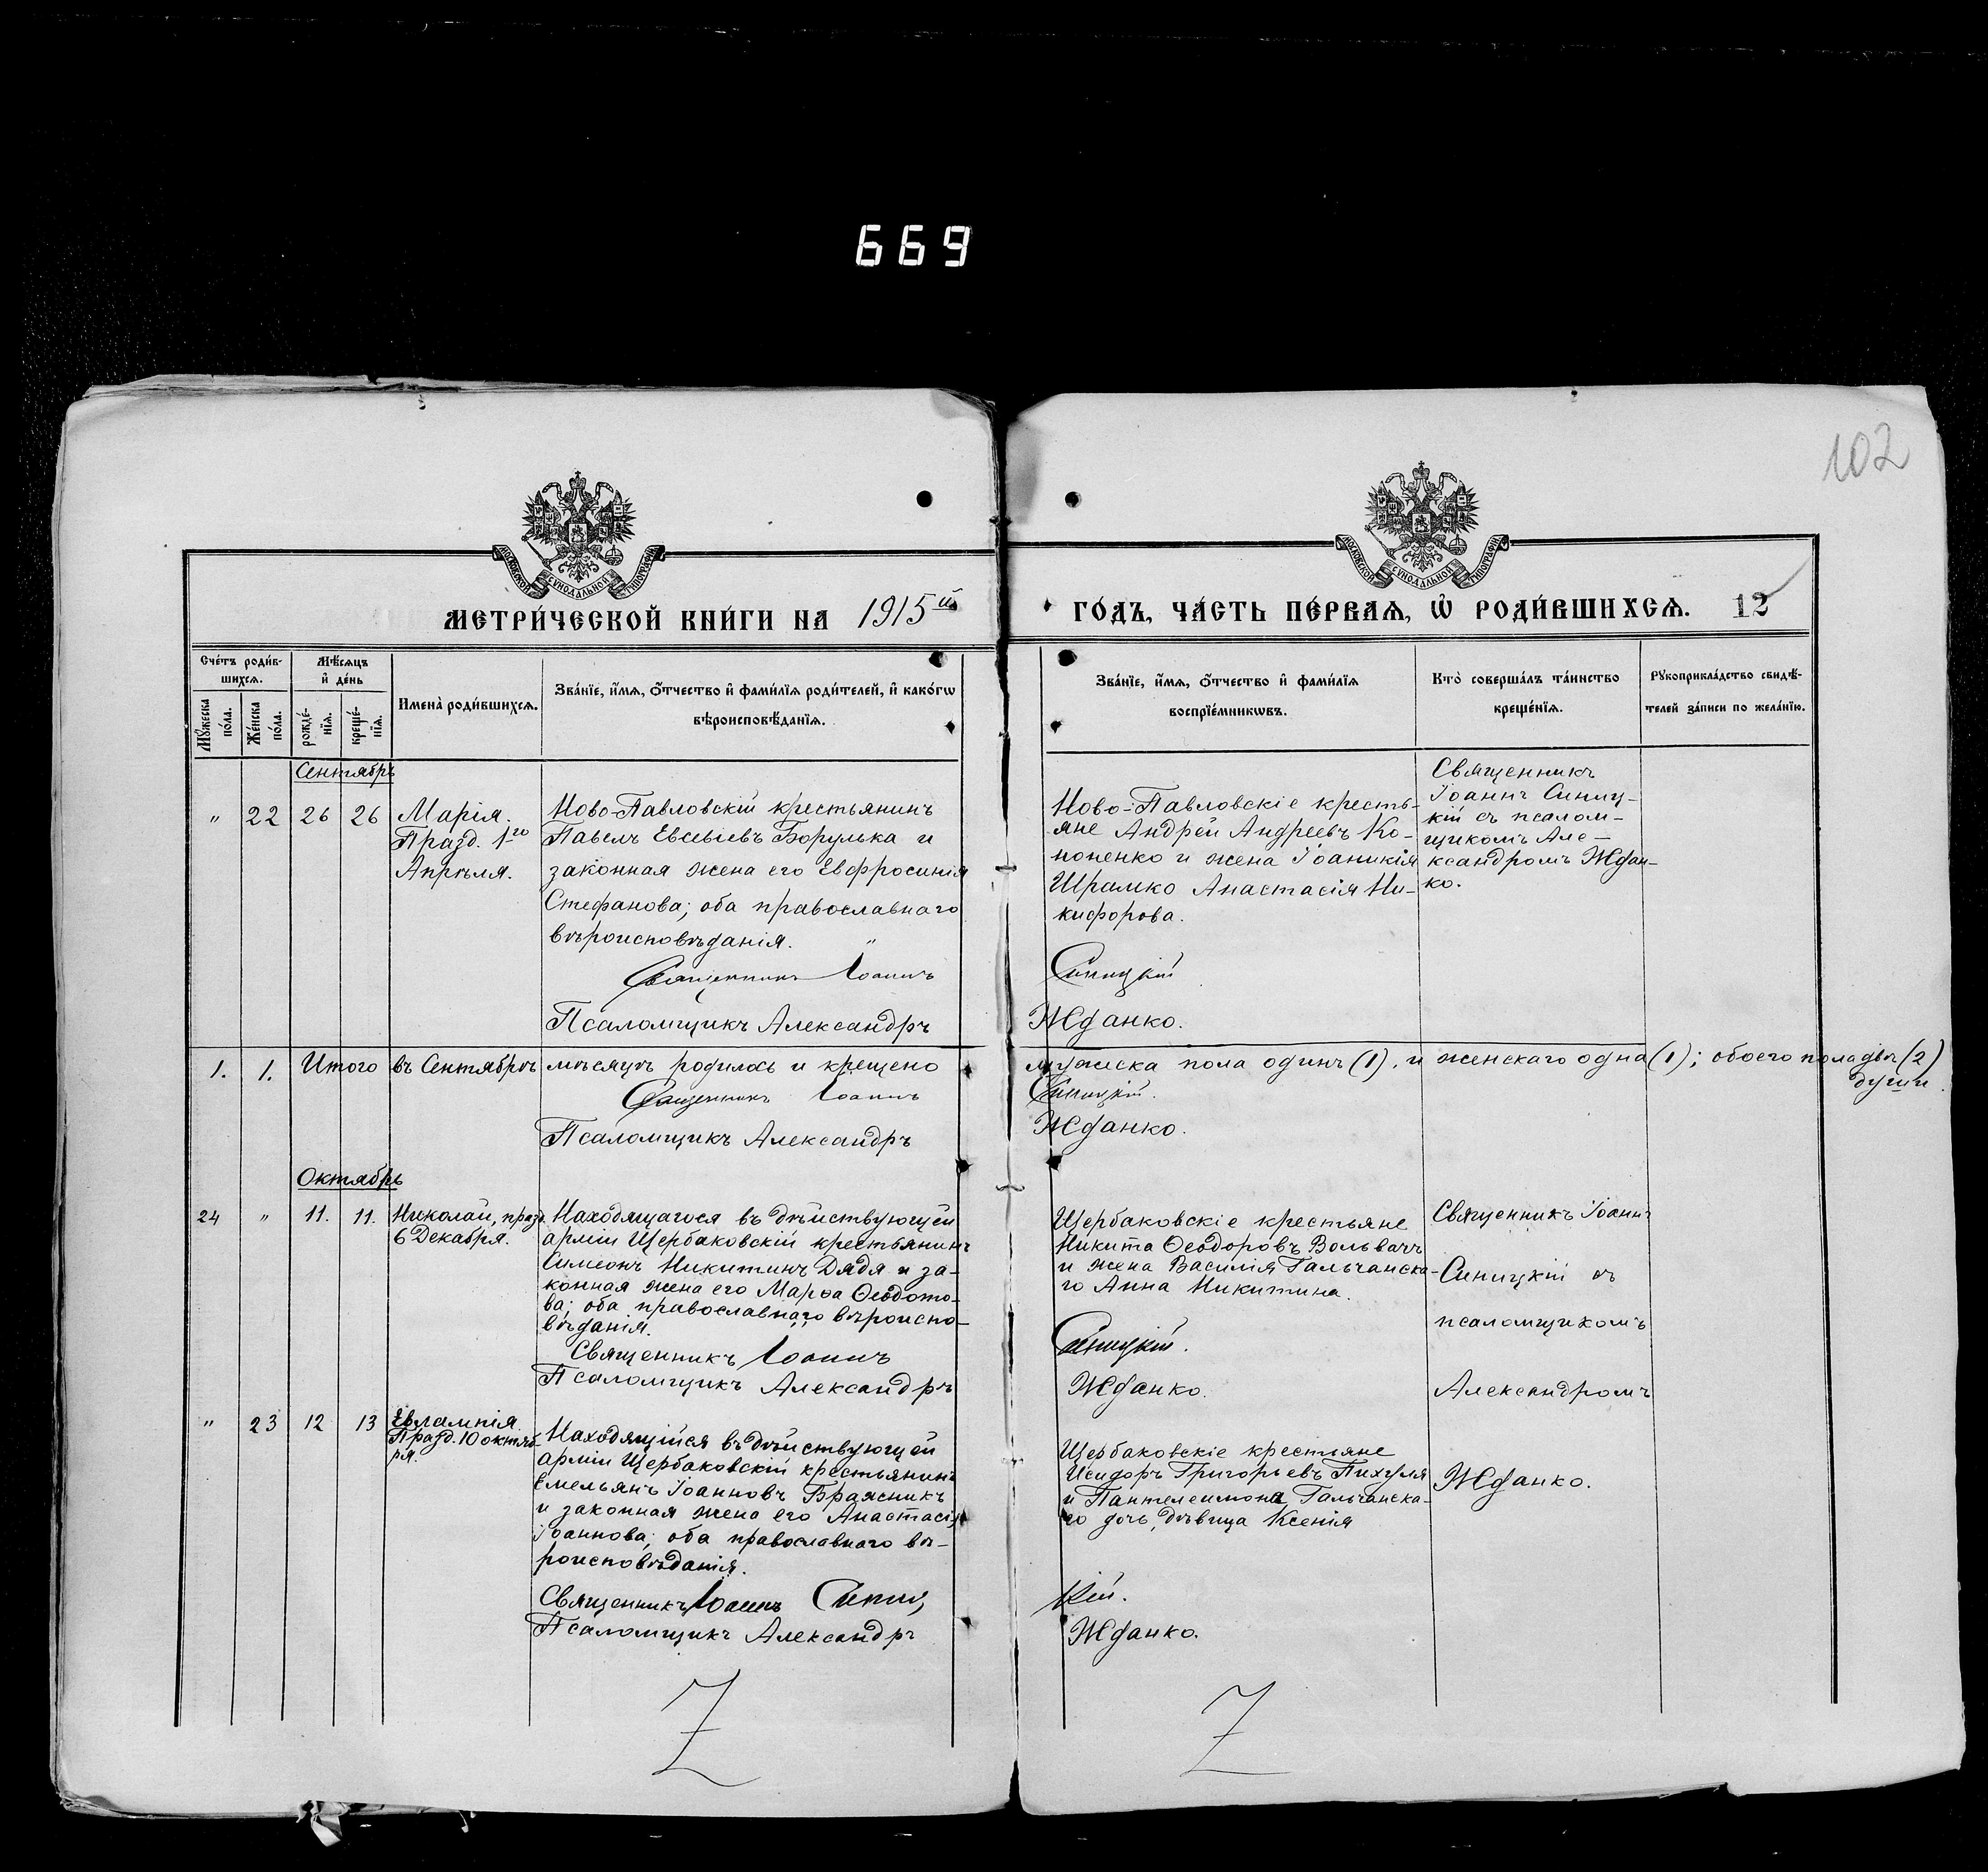 669
102
МОСКОВСКОЙ СѴНОДАЛЬНОЙ ТИПОГРАФІИ
МОСКОВСКОЙ СѴНОДАЛЬНОЙ ТИПОГРАФІИ
МЕТРИ́ЧЕСКОЙ КНИ́ГИ НА 1915 й
ГО́ДЪ, ЧА́СТЬ ПЕ́РВАѦ, Ѽ РОДИ́ВШИХСѦ. 12
Сче́тъ роди́в-
шихсѧ.
Мѣ́сѧцъ
и҆ де́нь
Мꙋ́жеска
по́ла.
Же́нска
по́ла.
рожде́-
нїѧ.
креще́-
нїѧ.
Имена̀ роди́вшихсѧ.
Зва́нїе, и҆́мѧ, ѻ҆́тчество и҆ фами́лїѧ роди́телей, и҆ како́гѡ
вѣроисповѣ́данїѧ.
Зва́нїе, и҆́мѧ, ѻ҆́тчество и҆ фами́лїѧ
воспрїе́мникѡвъ.
Кто̀ соверша́лъ та́инство
креще́нїѧ.
Рꙋкоприкла́дство свидѣ́-
телей за́писи по жела́нїю.
Сентябрь
" 22 26 26
Марія.
Празд. 1го
Апрѣля.
Ново-Павловскій крестьянинъ
Павелъ Евсевіевъ Борулька и
законная жена его Евфросинія
Стефанова; оба православнаго
вѣроисповѣданія. "
Священникъ Іоаннъ
Псаломщикъ Александръ
Ново-Павловскіе кресть-
яне Андрей Андреевъ Ко-
ноненко и жена Іоаникія
Шрамко Анастасія Ни-
кифорова.
Синицкій
Жданко.
Священникъ
Іоаннъ Синиц-
кій съ псалом-
щикомъ Але-
ксандромъ Ждан-
ко.
1. 1. Итого въ Сентябрѣ мѣсяцѣ родилось и крещено мужска пола одинъ (1), и женскаго одна (1); обоего пола двѣ (2)
души.
Священникъ Іоаннъ Синицкій.
Псаломщикъ Александръ Жданко.
Октябрь
24 " 11. 11.
Николай, празд.
6 Декабря.
Находящагося въ дѣйствующей
арміи Щербаковскій крестьянинъ
Симеонъ Никитинъ Дядя и за-
конная жена его Марѳа Ѳеодото-
ва; оба православнаго вѣроиспо-
вѣданія.
Священникъ Іоаннъ
Псаломщикъ Александръ
Щербаковскіе крестьяне
Никита Ѳеодоровъ Вольвачъ
и жена Василія Гальчанска-
го Анна Никитина.
Синицкій.
Жданко.
Священникъ Іоаннъ
Синицкій съ
псаломщикомъ
Александромъ
" 23 12 13
Евлампія.
Празд. 10 октяб-
ря.
Находящійся въ дѣйствующей
арміи Щербаковскій крестьянинъ
Емельянъ Іоанновъ Браясникъ
и законная жена его Анастасія
Іоаннова; оба православнаго вѣ-
роисповѣданія.
Священникъ Іоаннъ Синиц
Псаломщикъ Александръ
Щербаковскіе крестьяне
Исидоръ Григорьевъ Пихуля
и Пантелеимона Гальчанска-
го дочь, дѣвица Ксенія
кій.
Жданко.
Жданко.